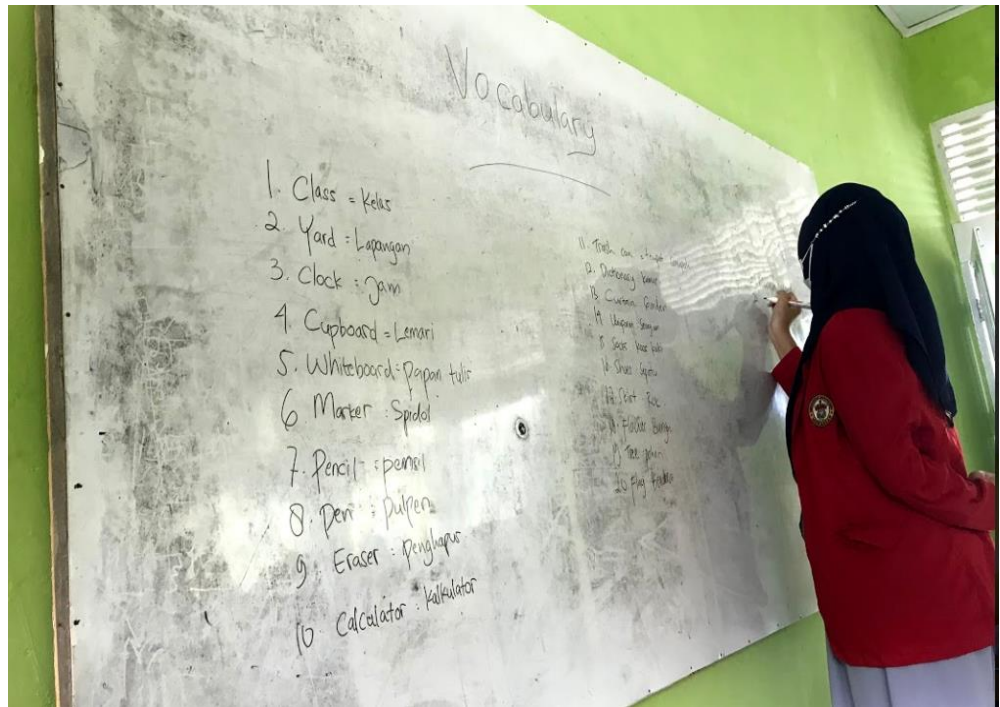 Vocabulary
1. Class = Kelas
2. Yard = Lapangan
3. Clock = Jam
4. Cupboard = Lemari
5. Whiteboard = papan tulis
6 Marker = Spidol
7. Pencil = pensil
8. Pen = pulpen
9. Eraser = penghapus
10 Calculator = kalkulator
11. Trash can = tempat
12. Dictionary kamus
13. Curtain Gorden
14
15 Socks kaos kaki
16 Shoes Sepatu
17 Skirt Rok
18. Flower Bunga
19 Tree pohon
20 Flag